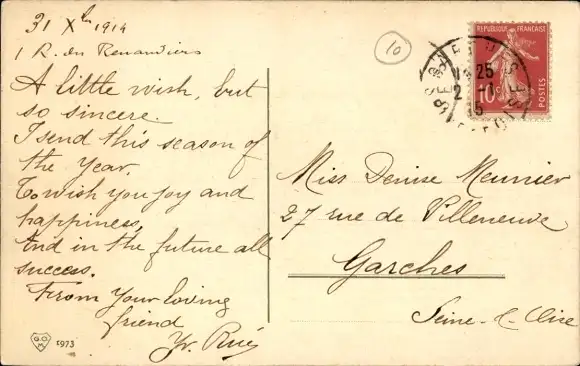 31 Xbre 1914
1 R. du Renardiers
A little wish, but
so sincere.
I send this season of
the Year,
To wish you joy and
happiness,
And in the future all
success.
From Your loving
friend
Yv.
10
REPUBLIQUE FRANÇAISE
10c
POSTES
25
2 - 1
15
Miss Denise Meunier
27 rue de Villeneuve
Garches
Seine-&-Oise
G.O.M.
1973